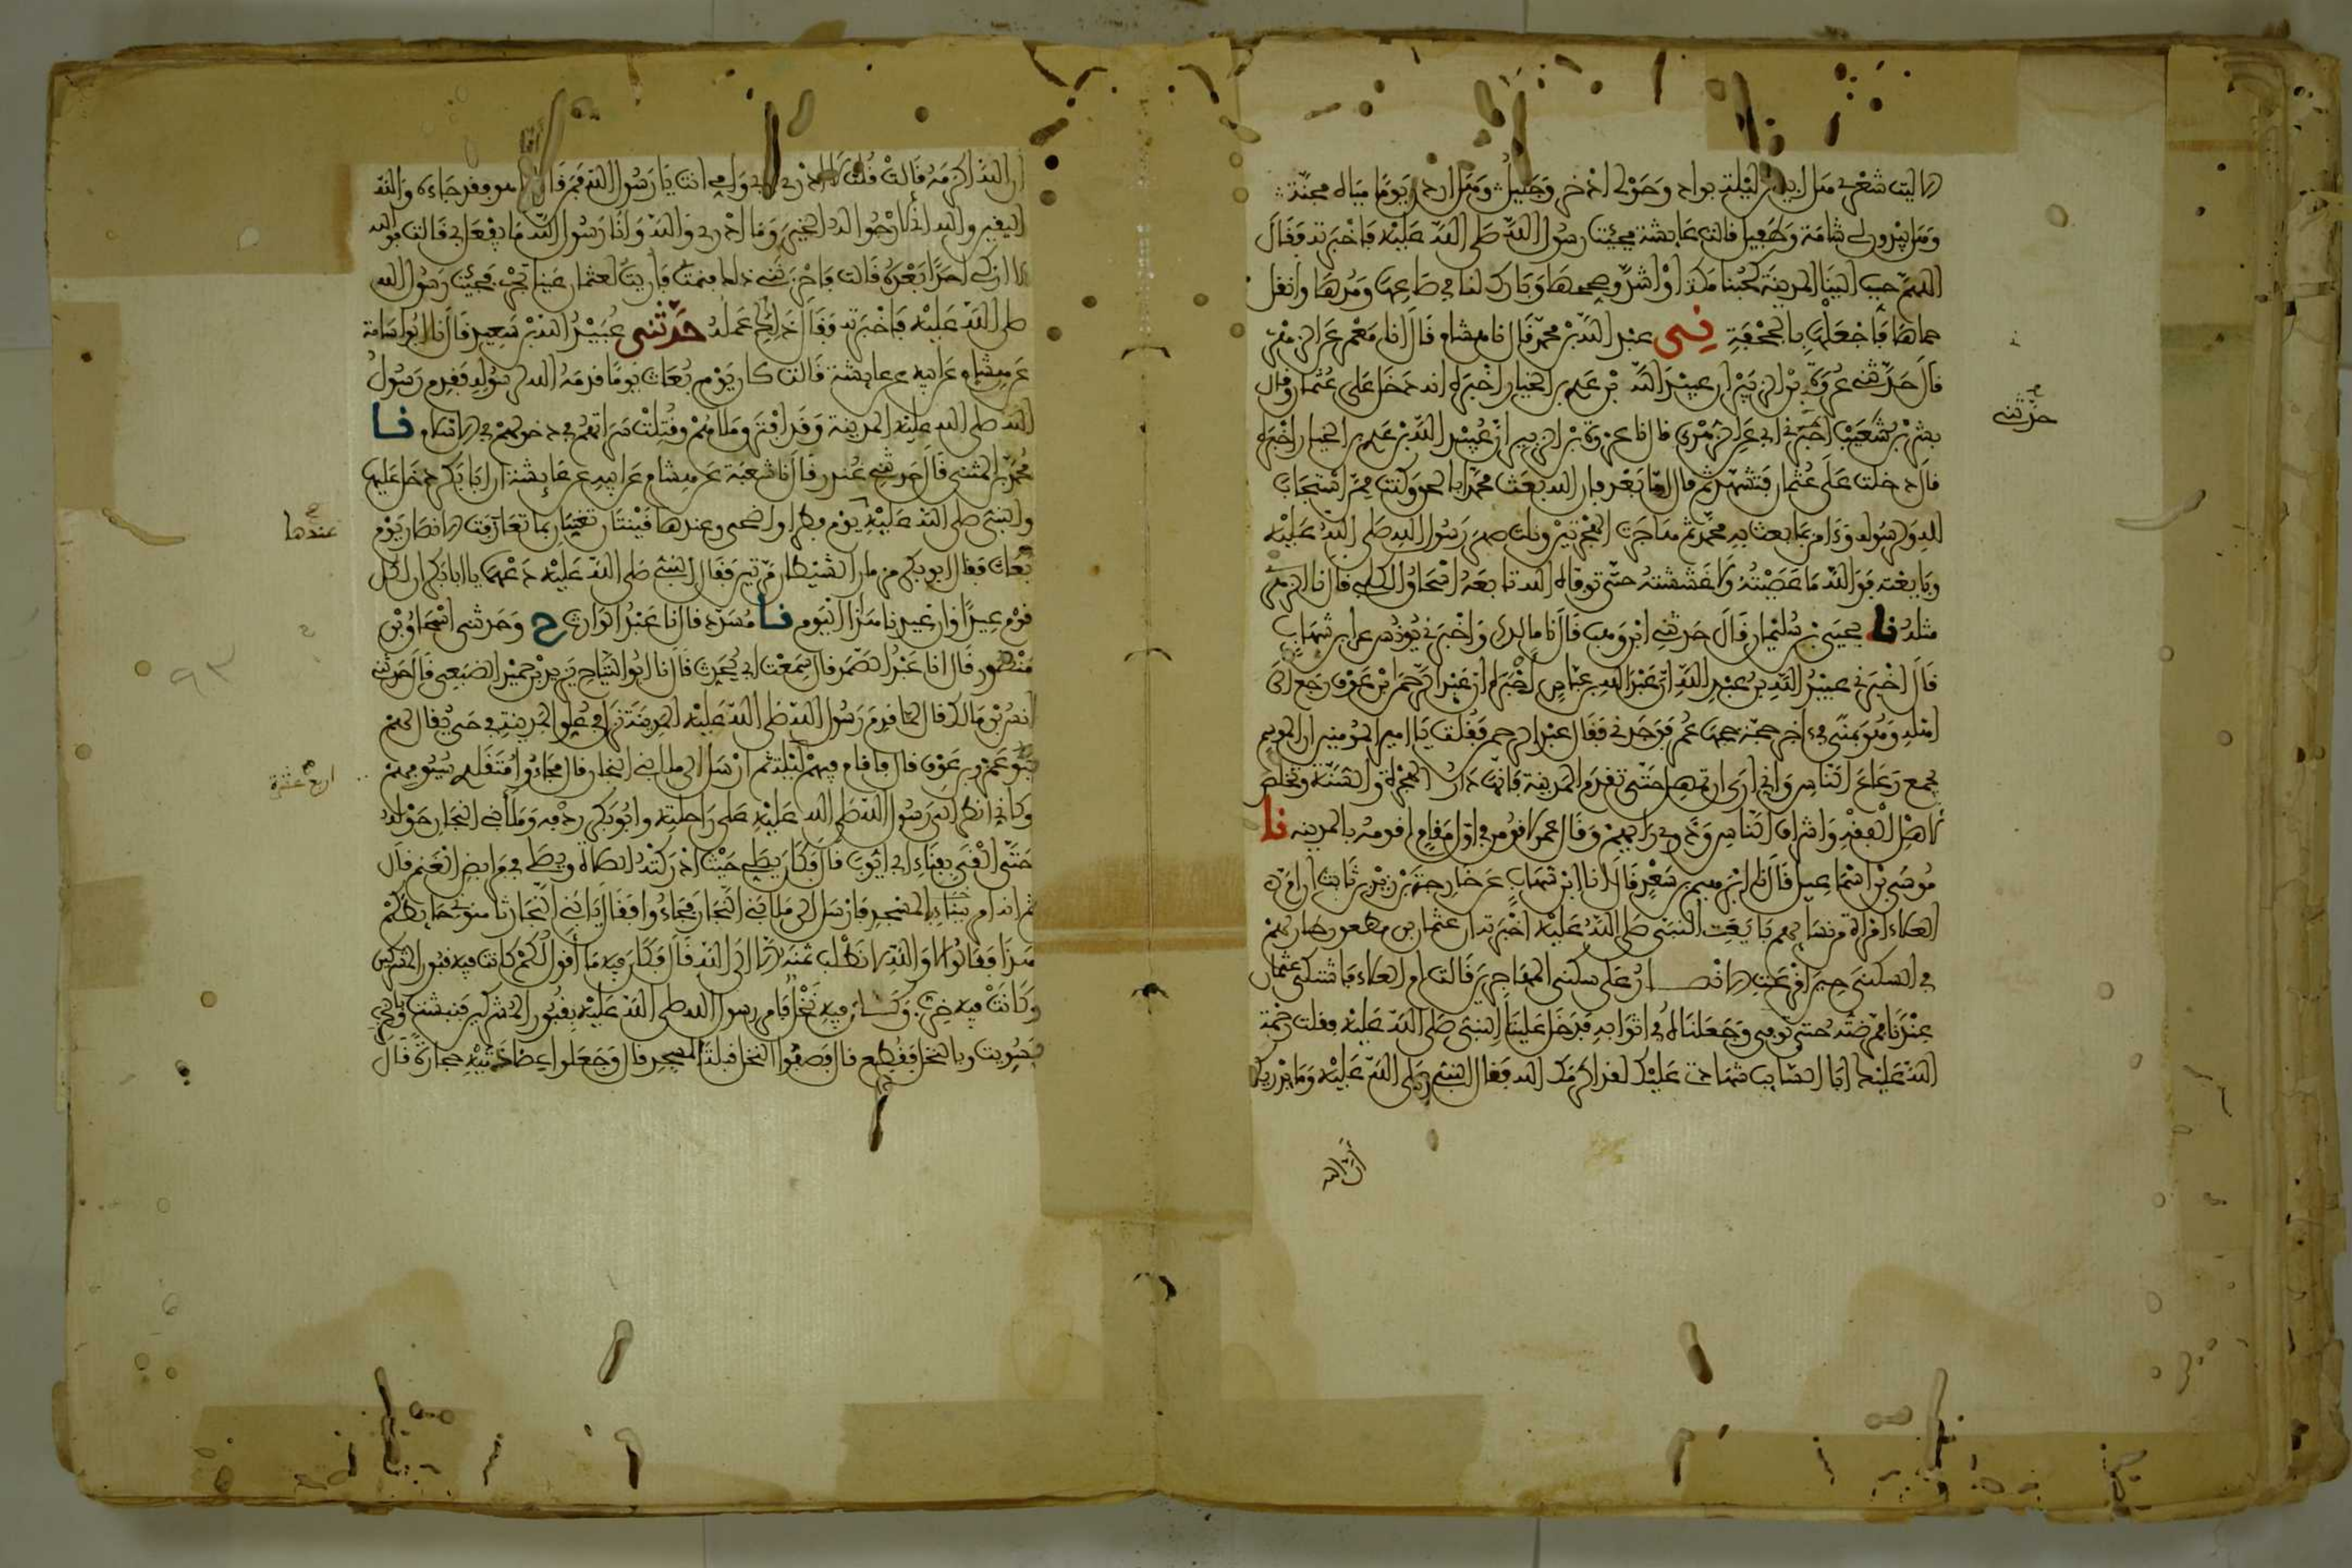 الا ليت شعري هل ابيتن ليلة بواد وحولي اذخر وجليل وهل اردن يوما مياه مجنة
وهل يبدون لي شامة وطفيل قالت عايشة فجئت رسول الله صلى الله عليه فاخبرته فقال
اللهم حبب الينا المدينة كحبنا مكة او اشد وصححها وبارك لنا في صاعها ومدها وانقل
حماها فاجعلها بالجحفة نى عبد الله بن محمد قال انا هشام قال انا معمر عن الزهري
قال حدثني عروة بن الزبير ان عبيد الله بن عدي بن الخيار اخبره انه دخل على عثمان وقال
حدثني
بشر بن شعيب اخبرني ابي عن الزهري قال نا عروة بن الزبير ان عبيد الله بن عدي بن الخيار اخبره
قال دخلت على عثمان فتشهد ثم قال اما بعد فان الله بعث محمدا بالحق وكنت ممن استجاب
لله ولرسوله وءامن بما بعث به محمد ثم هاجرت الهجرتين ونلت صهر رسول الله صلى الله عليه
وبايعته فوالله ما عصيته ولا غششته حتى توفاه الله تابعه اسحاق الكلبي قال نا الزهري
مثله نا يحيى بن سليمان قال حدثني ابن وهب قال نا مالك واخبرني يونس عن ابن شهاب
قال اخبرني عبيد الله بن عبد الله ان عبد الله بن عباس اخبره ان عبد الرحمن بن عوف رجع الى
اهله وهو بمنى في ءاخر حجة حجها عمر فوجدني فقال عبد الرحمن فقلت يا امير المومنين ان الموسم
يجمع رعاع الناس واني ارى ان تمهل حتى تقدم المدينة فانها دار الهجرة والسنة وتخلص
لاهل الفقه واشراف الناس وذوي رايهم وقال عمر لاقومن في اول مقام اقومه بالمدينه نا
موسى بن اسماعيل قال نا ابراهيم بن سعد قال انا ابن شهاب عن خارجة بن زيد بن ثابت ان ام
العلاء امراة من نسايهم بايعت النبي صلى الله عليه اخبرته ان عثمان بن مظعون طار لهم
في السكنى حين اقرعت الانصار على سكنى المهاجرين قالت ام العلاء فاشتكى عثمان
عندنا فمرضته حتى توفي وجعلناه في اثوابه فدخل علينا النبي صلى الله عليه فقلت رحمة
الله عليك ابا السائب شهادتي عليك لقد اكرمك الله فقال النبي صلى الله عليه وما يدريك
ان الله
ان الله اكرمه قالت قلت لا ادري بابي وامي انت يا رسول الله فمن قال اما هو فقد جاءه والله
اليقين والله اني لارجوا له الخير وما ادري والله وانا رسول الله ما يفعل بي قالت فوالله
لا ازكي احدا بعده قالت فاحزنني ذلك فنمت فاريت لعثمان عينا تجري فجئت رسول الله
صلى الله عليه فاخبرته فقال ذلك عمله حدثني عبيد الله بن سعيد قال نا ابو اسامة
عن هشام عن ابيه عن عايشة قالت كان يوم بعاث يوما قدمه الله لرسوله فقدم رسول
الله صلى الله عليه المدينة وقد افترق ملاهم وقتلت سراتهم في دخولهم في الاسلام نا
محمد بن المثنى قال حدثني غندر قال نا شعبة عن هشام عن ابيه عن عايشة ان ابا بكر دخل عليها
والنبي صلى الله عليه يوم فطر او اضحى وعندها قينتان تغنيان بما تعازفت الانصار يوم
عندها
بعاث فقال ابو بكر مزمار الشيطان مرتين فقال النبي صلى الله عليه دعهما يا ابا بكر ان لكل
قوم عيدا وان عيدنا هذا اليوم نا مسدد قال نا عبد الوارث ح وحدثني اسحاق بن
منصور قال انا عبد الصمد قال سمعت ابي يحدث قال نا ابو التياح يزيد بن حميد الضبعي قال حدثني
انس بن مالك قال لما قدم رسول الله صلى الله عليه المدينة نزل في علو المدينة في حي يقال لهم
بنو عمرو بن عوف قال فاقام فيهم ليلة ثم ارسل الى ملا بني النجار قال فجاءوا متقلدي سيوفهم
اربع عشرة
وكاني انظر الى رسول الله صلى الله عليه على راحلته وابو بكر ردفه وملا بني النجار حوله
حتى القى بفناء ابي ايوب قال فكان يصلي حيث ادركته الصلاة ويصلي في مرابض الغنم قال
ثم انه امر ببناء المسجد فارسل الى ملا بني النجار فجاءوا فقال يا بني النجار ثامنوني حائطكم
هذا فقالوا لا والله لا نطلب ثمنه الا الى الله قال فكان فيه ما اقول لكم كانت فيه قبور المشركين
وكانت فيه خرب وكان فيه نخل فامر رسول الله صلى الله عليه بقبور المشركين فنبشت وبالخرب
فسويت وبالنخل فقطع قال فصفوا النخل قبلة المسجد قال وجعلوا عضادتيه حجارة قال
٩٣